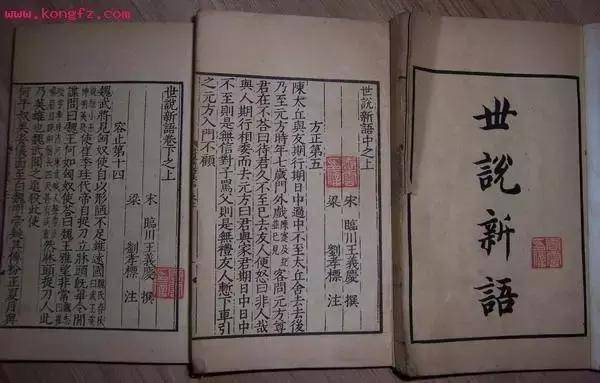 www.kongfz.com
世說新語
世說新語中之上
方正第五
宋 臨川王義慶 撰
梁 劉孝標 注
陳太丘與友期行期日中過中不至太丘舍去去後
乃至元方時年七歲門外戲陳寔及紀並已見客問元方尊
君在不答曰待君久不至已去友人便怒曰非人哉
與人期行相委而去元方曰君與家君期日中日中
不至則是無信對子罵父則是無禮友人慙下車引
之元方入門不顧
世說新語卷下之上
容止第十四
宋 臨川王義慶 撰
梁 劉孝標 注
魏武將見匈奴使自以形陋不足雄遠國魏氏春秋
使崔季珪代帝自捉刀立牀頭既畢令間
諜問曰魏王何如匈奴使答曰魏王雅望非常
然牀頭捉刀人此
乃英雄也魏武聞之追殺此使
何平叔美姿儀面至白魏明帝疑其傅粉正夏月與